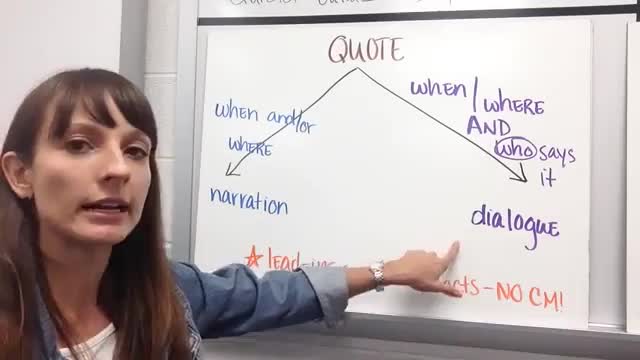 QUOTE
when and/or
WHERE
narration
when/WHERE
AND
who says
it
dialogue
☆ lead-ins
- NO CM!